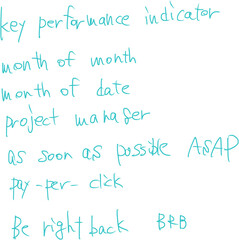 key performance indicator
month of month
month of date
project manager
as soon as possible ASAP
pay-per-click
Be right back BRB